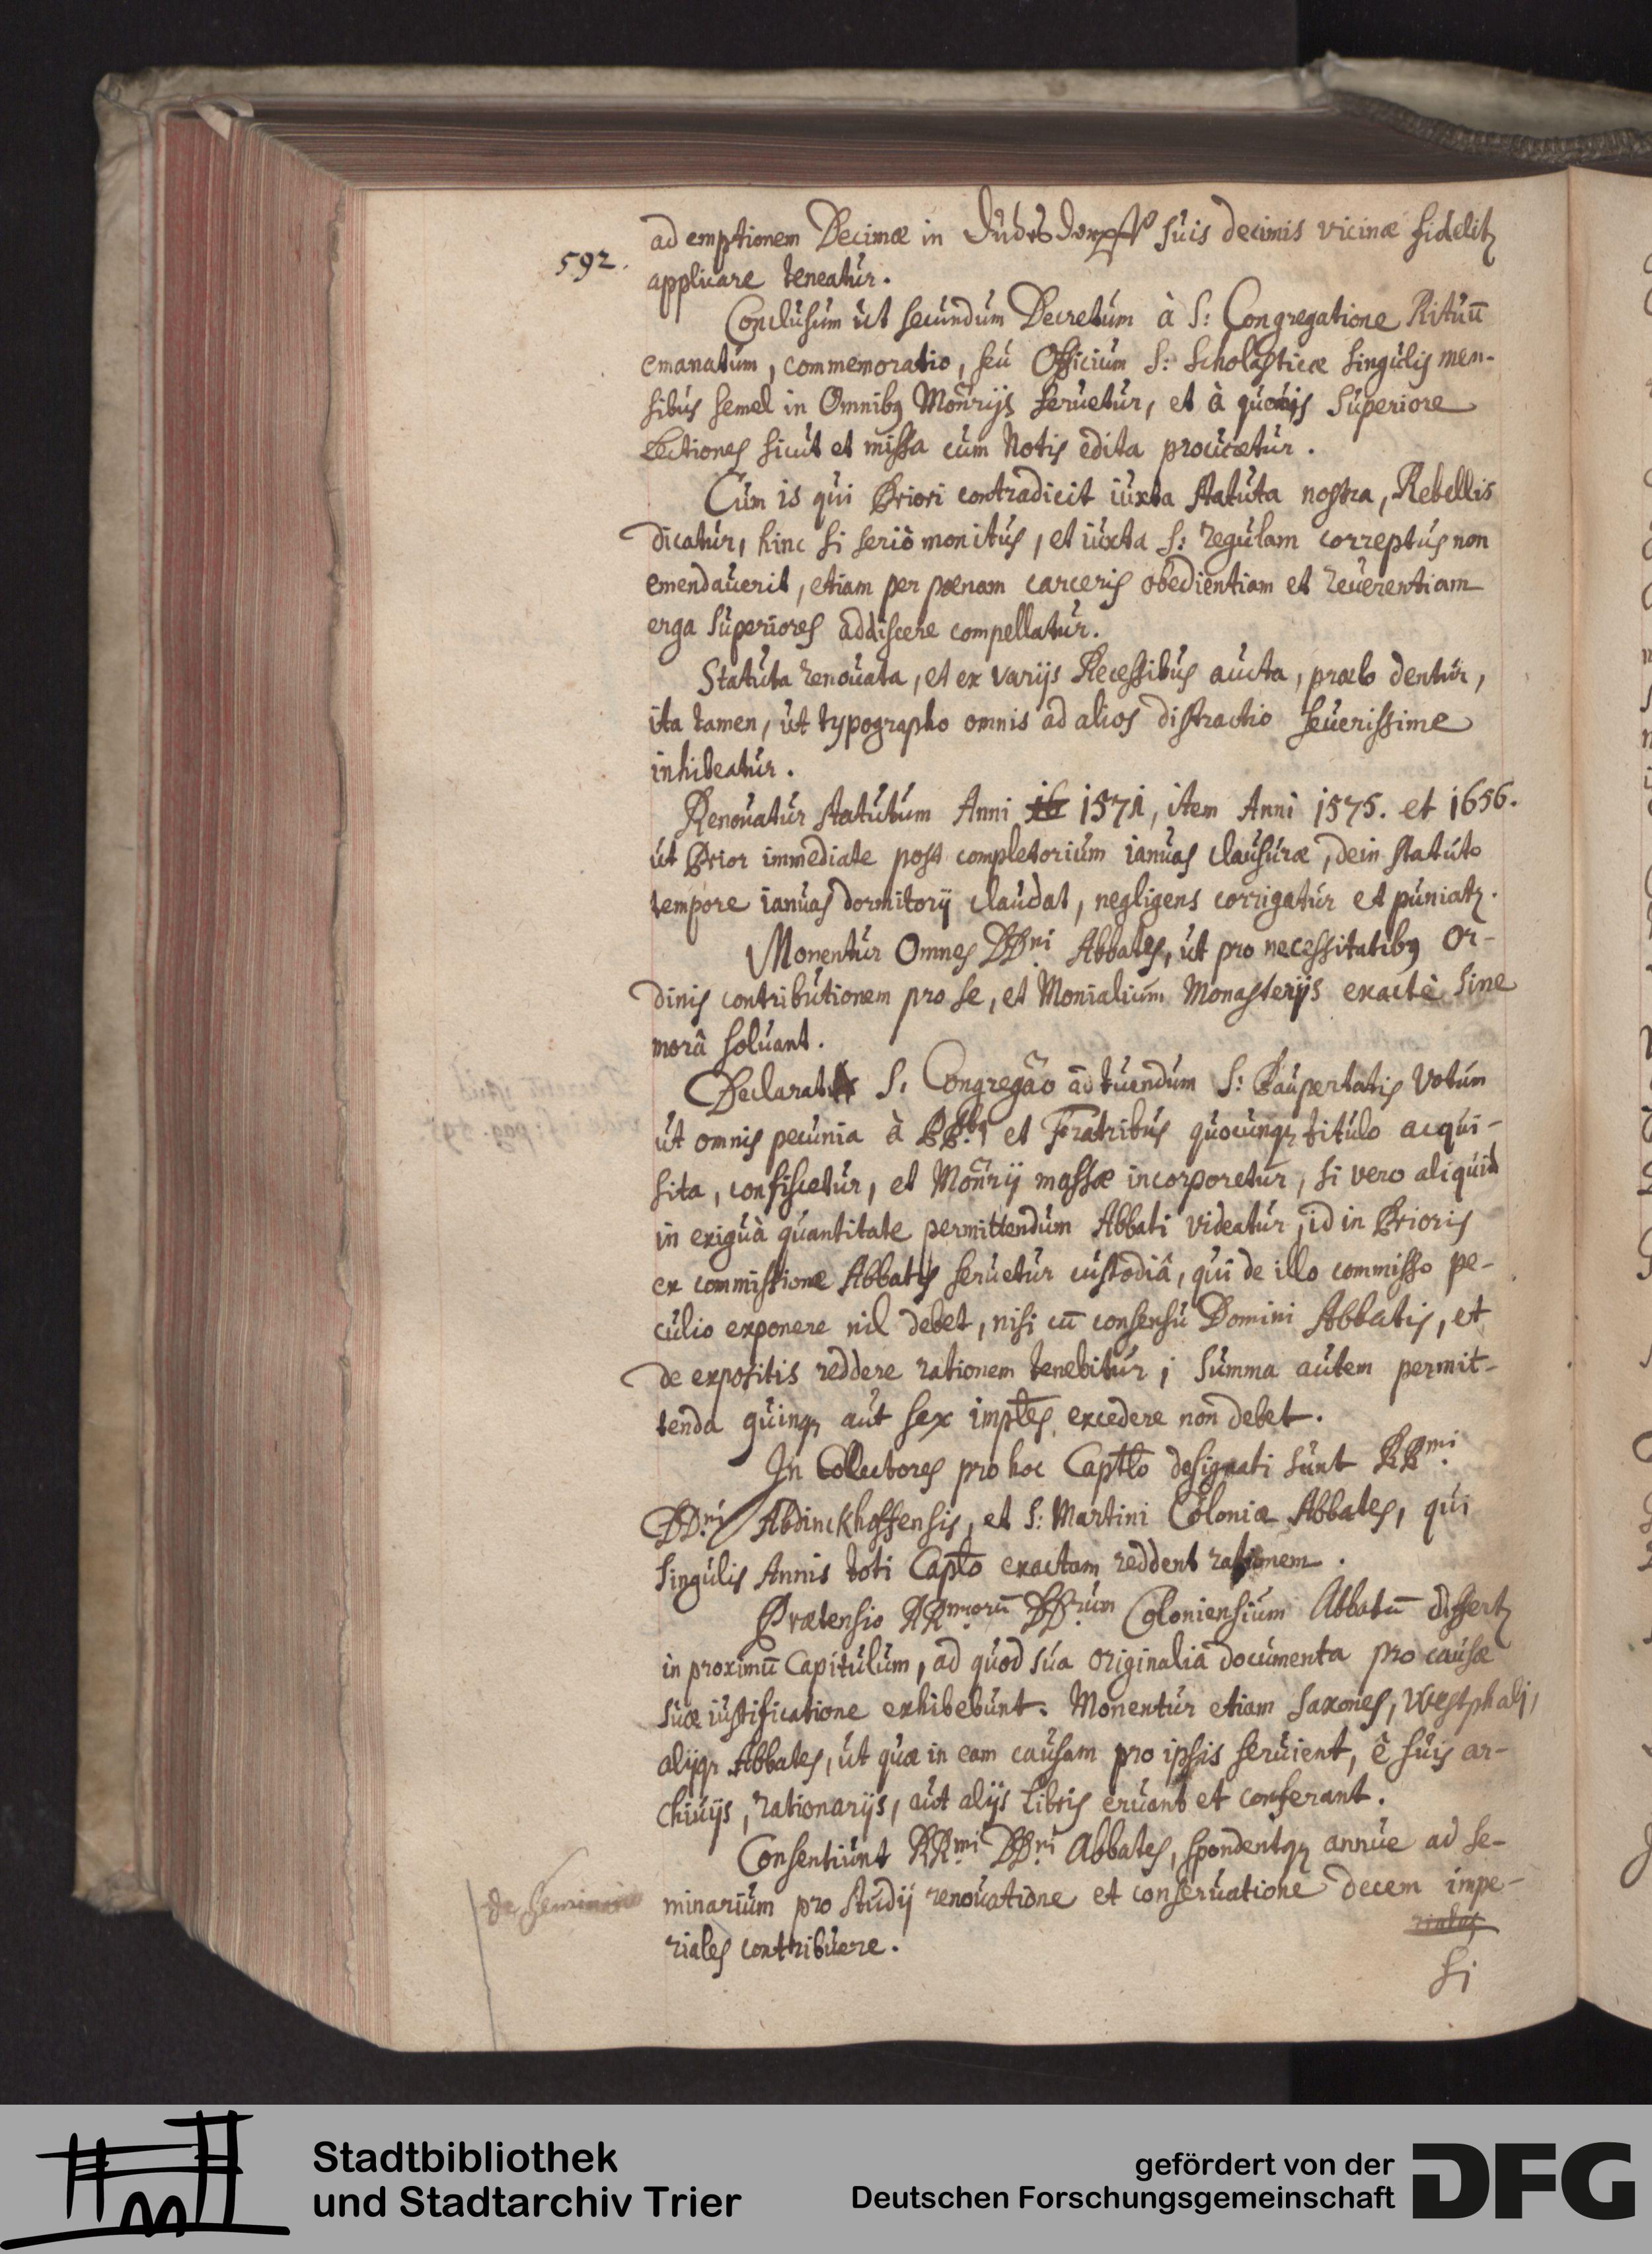 592.
ad emptionem Decimæ in Dudesdorff suis decimis vicinæ fidelitꝫ
applicare teneatur.
Conclusum ut secundum Decretum à S: Congregatione Rituū
emanatum, commemoratio, seu Officium S: Scholasticæ singulis men-
sibus semel in Omnibꝫ Monrijs seruetur, et à quovis Superiore
Lectiones sicut et missa cum Notis edita procuretur.
Cum is qui Priori contradicit iuxta statuta nostra, Rebellis
dicatur, hinc si seriò monitus, et iuxta S: regulam correptus non
emendauerit, etiam per pœnam carceris obedientiam et reuerentiam
erga Superiores addiscere compellatur.
Statuta renouata, et ex varijs Recessibus aucta, prælo dentur,
ita tamen, ut typographo omnis ad alios distractio seuerissime
inhibeatur.
Renouatur statutum Anni 16 1571, item Anni 1575. et 1656.
ut Prior immediate post completorium ianuas clausuræ, dein statuto
tempore ianuas dormitorij claudat, negligens corrigatur et puniatꝫ.
Monentur Omnes DDni Abbates, ut pro necessitatibꝫ Or-
dinis contributionem pro se, et Monialium Monasterijs exactè sine
morâ soluant.
Declarat S. Congregao ad tuendum S: Paupertatis Votum
ut omnis pecunia à PPbꝫ et Fratribus quocunqꝫ titulo acqui-
sita, confiscetur, et Monrij massæ incorporetur, si vero aliquid
in exiguà quantitate permittendum Abbati videatur, id in Prioris
ex commissione Abbatis seruetur custodiâ, qui de illo commisso pe-
culio exponere nil debet, nisi cū consensu Domini Abbatis, et
de expositis reddere rationem tenebitur; Summa autem permit-
tenda quinqꝫ aut sex imptes excedere non debet.
In Collectores pro hoc Captlo designati sunt RRmi.
DDni Abdinckhoffensis, et S: Martini Coloniæ Abbates, qui
singulis Annis toti Capto exactam reddent rationem.
Prætensio RRmorū DDrum Coloniensium Abbatū differtꝫ
in proximū Capitulum, ad quod sua originalia documenta pro causæ
suæ iustificatione exhibebunt. Monentur etiam Saxones, Westphali,
alijqꝫ Abbates, ut quæ in eam causam pro ipsis seruient, è suis ar-
chiuijs, rationarijs, aut alijs libris eruant et conferant.
Consentiunt RRmi DDni Abbates, spondentqꝫ annue ad se-
de Seminario
minarium pro studij renouatione et conseruatione decem impe-
riales contribuere.
si
Stadtbibliothek
und Stadtarchiv Trier
gefördert von der
Deutschen Forschungsgemeinschaft
DFG